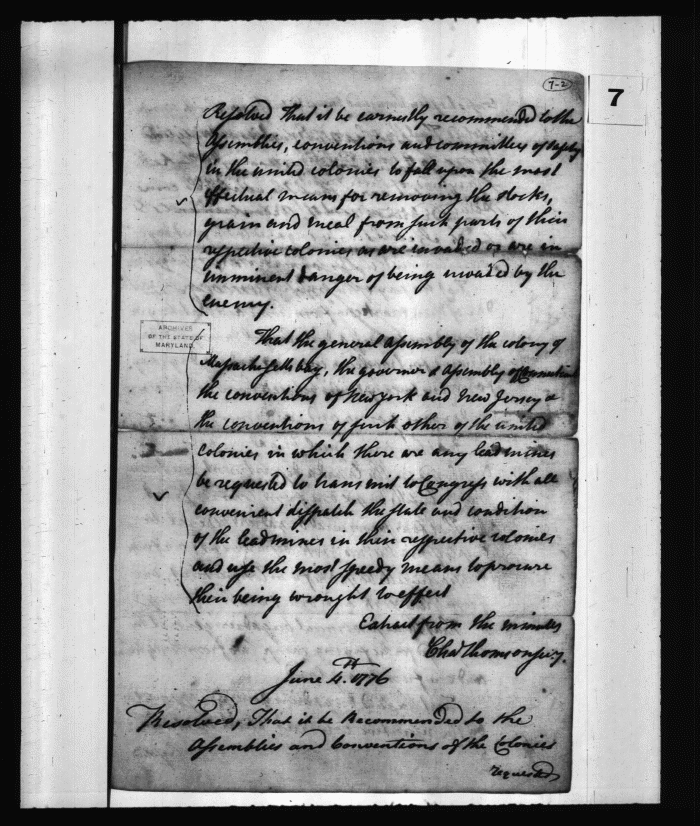 7-2
7
Resolved That it be earnestly recommended to the
Assemblies, conventions and committees of safety
in the united colonies to fall upon the most
effectual means for removing the stocks,
grain and meal from such parts of their
respective colonies as are invaded or are in
imminent danger of being invaded by the
enemy.
ARCHIVES
OF THE STATE OF
MARYLAND
That the general assembly of the colony of
Massachusetts bay, the governor & assembly of Connecticut
the conventions of New york and New Jersey &
the conventions of such other of the united
colonies in which there are any lead mines
be requested to transmit to Congress with all
convenient dispatch the state and condition
of the lead mines in their respective colonies
and use the most speedy means to procure
their being wrought to effect
Extract from the minutes
Cha Thomson secy.
June 4th. 1776
Resolved, That it be Recommended to the
Assemblies and Conventions of the Colonies
requested